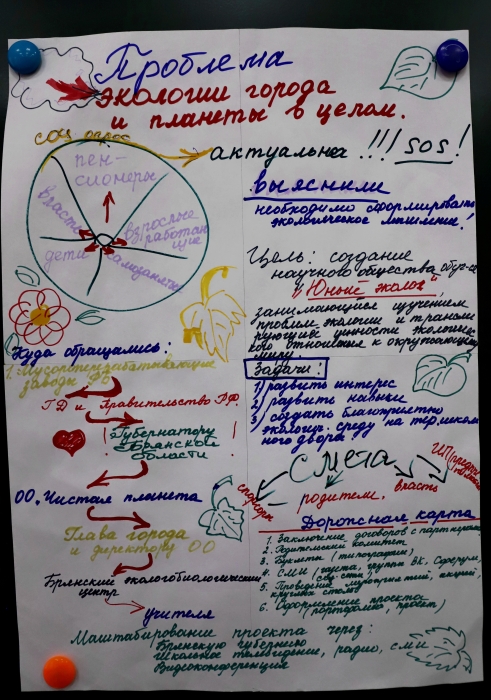 Проблема
экологии города
и планеты в целом.
соц. опрос
актуальна !!! SOS!
пен-
сионеры
власть
взрослые
работаю
щие
дети
самозанятые
выяснили
необходимо сформировать
экологическое мышление!
Цель: создание
научного общества обуч-ся
"Юный эколог"
занимающийся изучением
проблем экологии и трансли
рующие ценности экологичес
кого отношения к окружающему
миру.
Куда обращались:
1. Мусороперерабатывающие
заводы
ГД и Правительство РФ.
Губернатору
Брянской
области !
ОО. Чистая планета
Глава города
и директору ОО
Брянский экологобиологический
центр
учителя
Задачи:
1) развить интерес
2) развить навыки
3) создать благоприятно
экологич. среду на тер. школь
ного двора.
Смета
спонсоры
родители.
власть
ИП
Дорожная карта
1. Заключение договоров с партнерами
2. Родительский комитет
3. Буклеты (типография)
4. СМИ (газета, группы ВК, Сферум,
соц. сети)
5. Проведение мероприятий, акций,
круглых столов
6. Оформление проекта
(портфолио, проект)
Маштабирование проекта через:
Брянскую губернию
Школьное телевидение, радио, сми
Видеоконференция